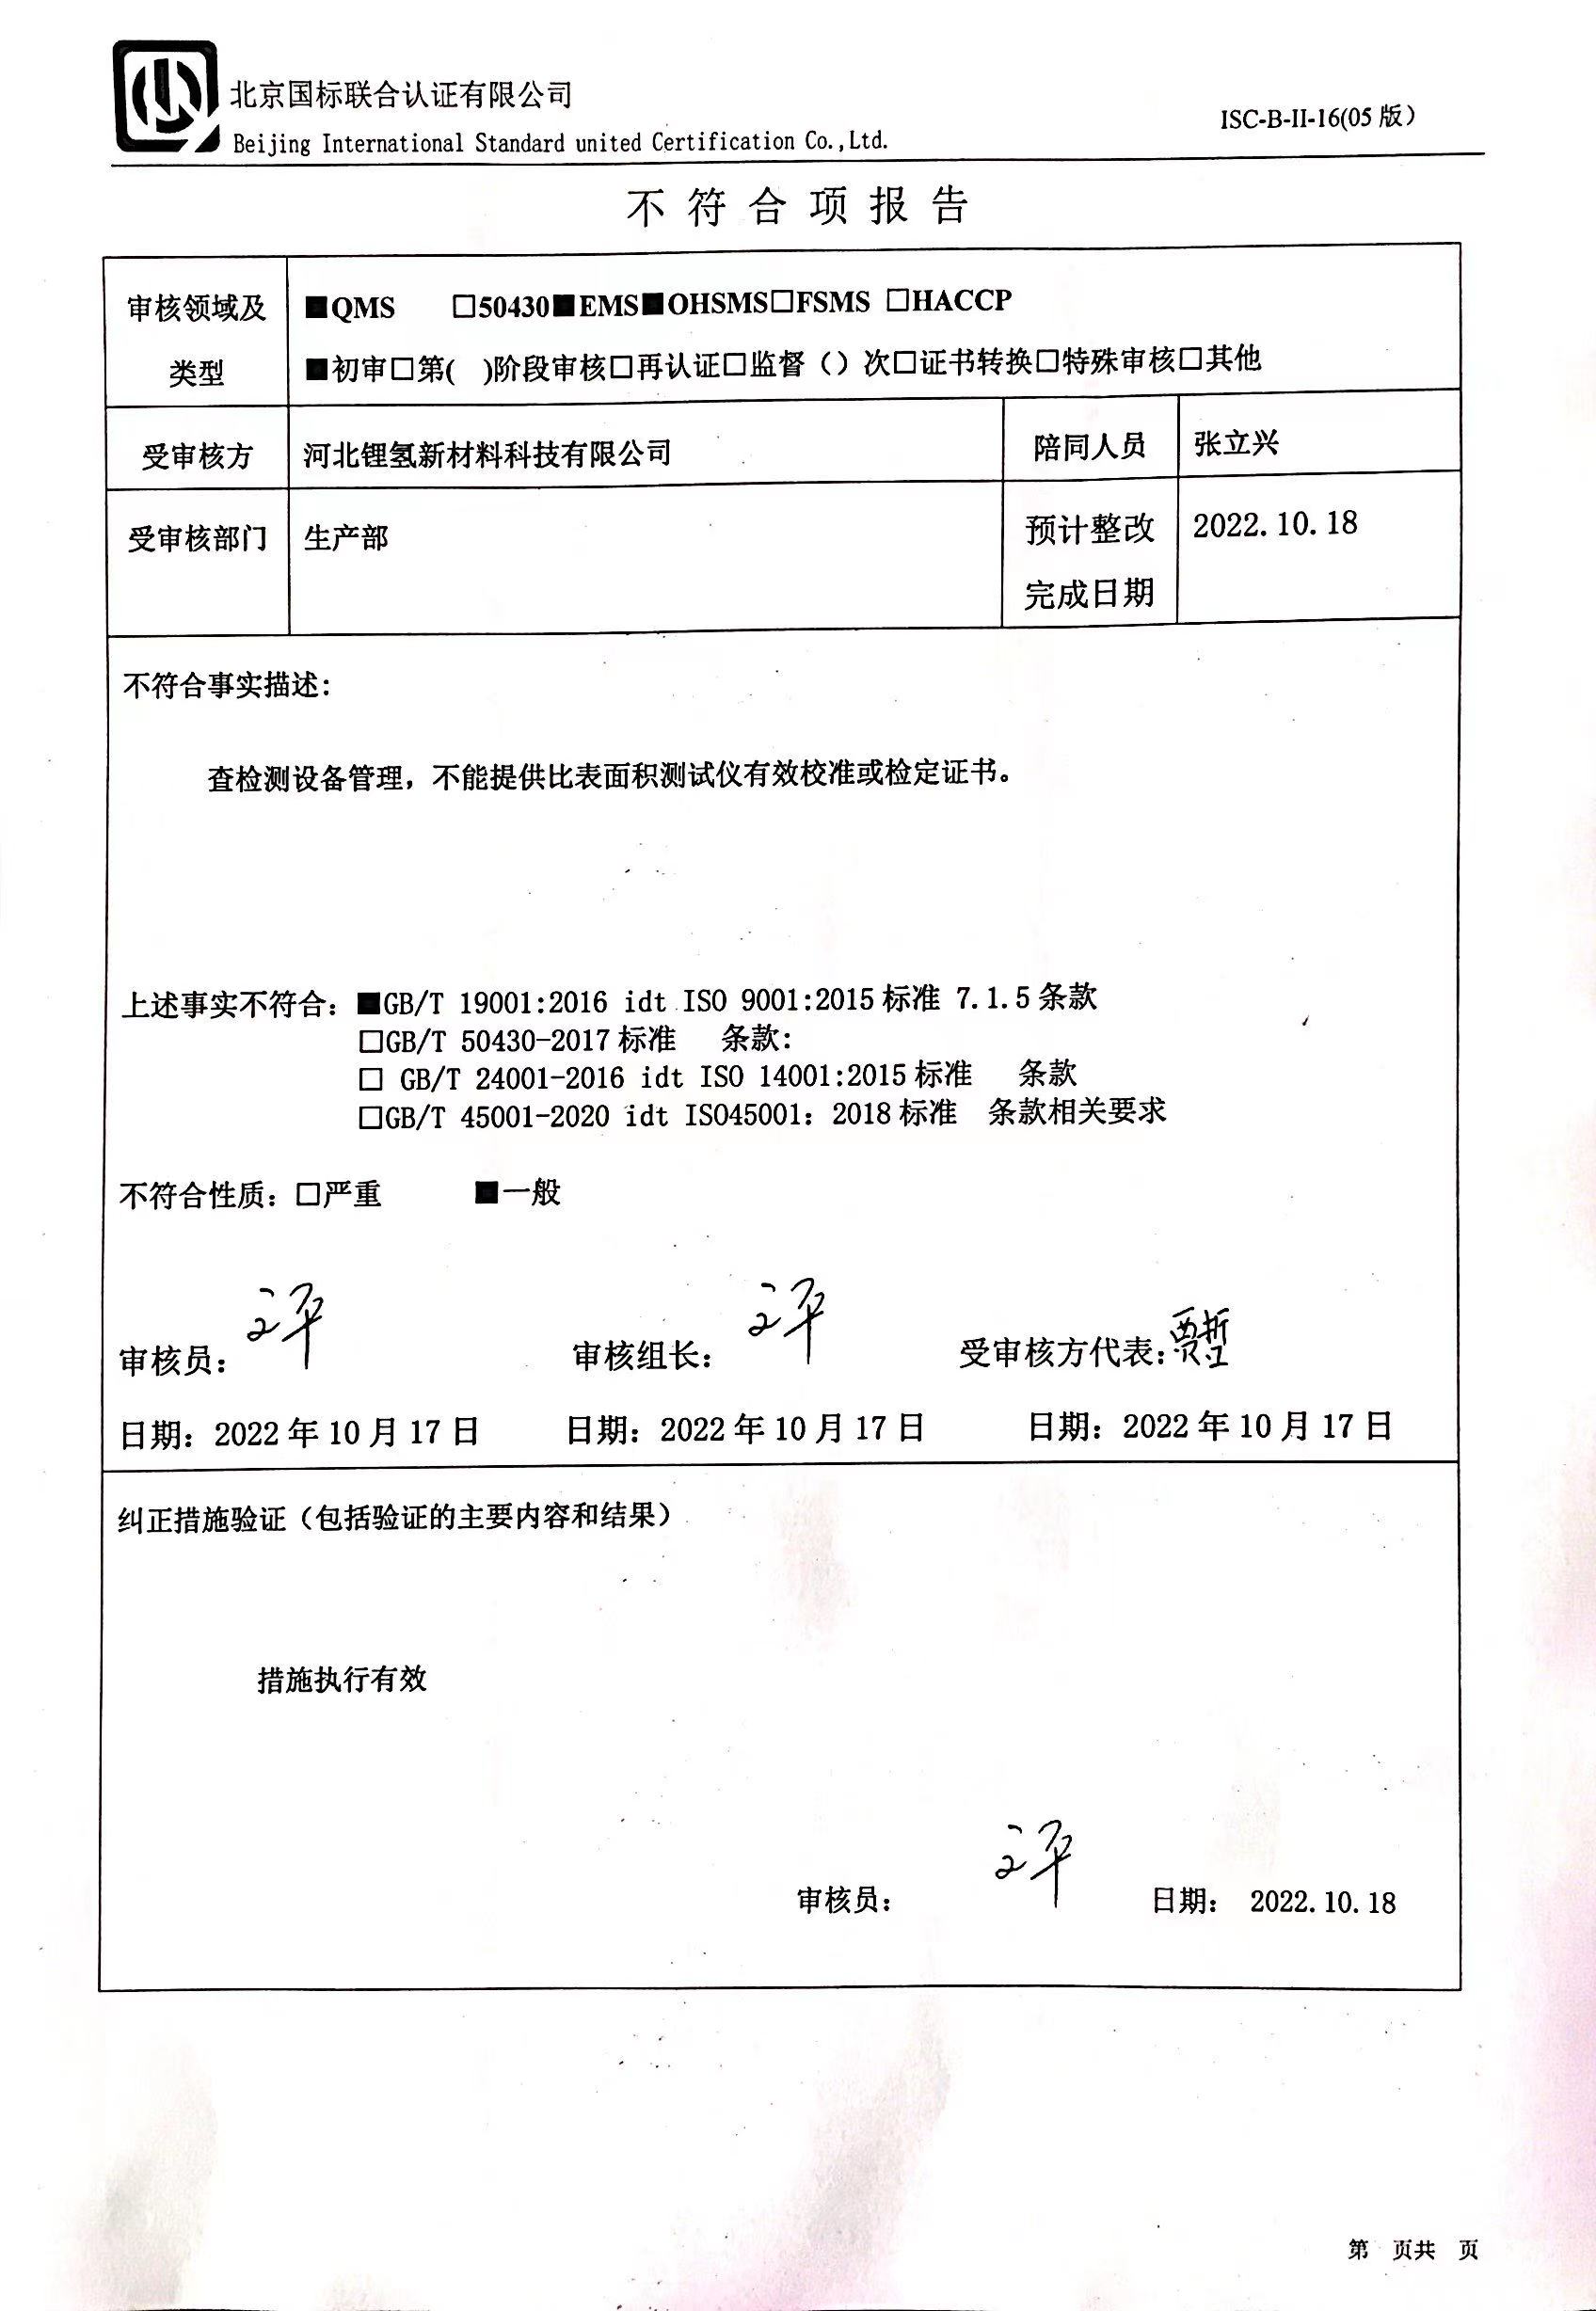 北京国标联合认证有限公司
Beijing International Standard united Certification Co.,Ltd.
ISC-B-II-16(05 版)
不符合项报告
审核领域及类型
■QMS □50430■EMS■OHSMS□FSMS □HACCP
■初审□第( )阶段审核□再认证□监督()次□证书转换□特殊审核□其他
受审核方 河北锂氢新材料科技有限公司 陪同人员 张立兴
受审核部门 生产部 预计整改完成日期 2022.10.18
不符合事实描述:
查检测设备管理，不能提供比表面积测试仪有效校准或检定证书。
上述事实不符合：■GB/T 19001:2016 idt ISO 9001:2015标准 7.1.5条款
□GB/T 50430-2017标准 条款:
□ GB/T 24001-2016 idt ISO 14001:2015标准 条款
□GB/T 45001-2020 idt ISO45001：2018标准 条款相关要求
不符合性质：□严重 ■一般
审核员： 审核组长： 受审核方代表:
日期：2022年10月17日 日期：2022年10月17日 日期：2022年10月17日
纠正措施验证（包括验证的主要内容和结果）
措施执行有效
审核员： 日期： 2022.10.18
第 页共 页